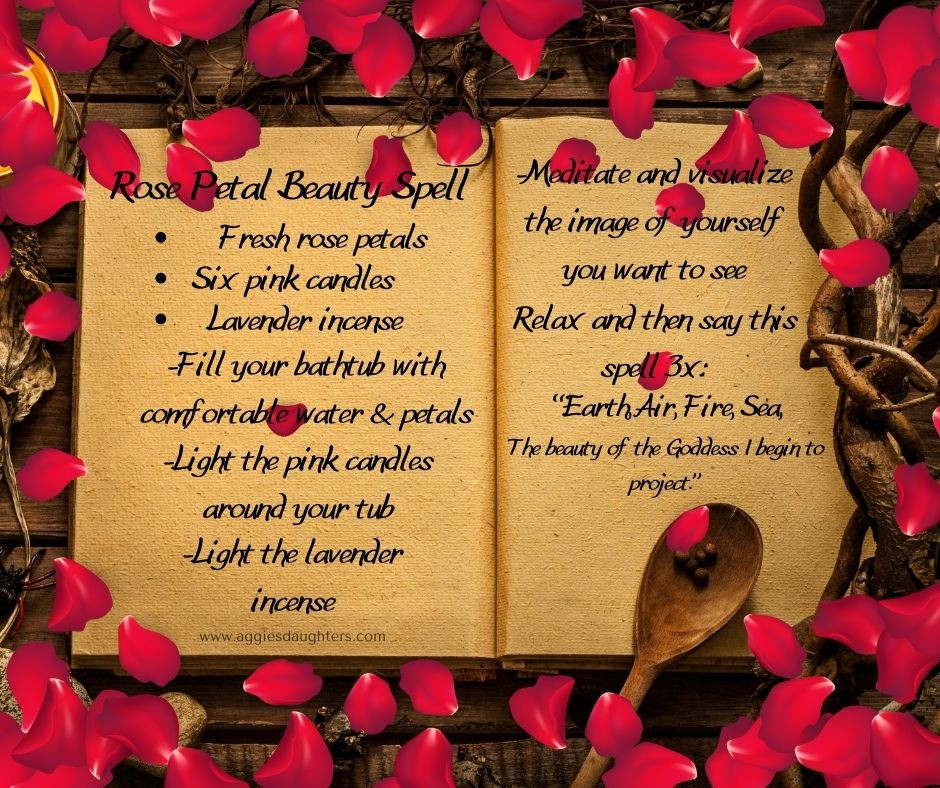 Rose Petal Beauty Spell
• Fresh rose petals
• Six pink candles
• Lavender incense
-Fill your bathtub with
comfortable water & petals
-Light the pink candles
around your tub
-Light the lavender
incense
www.aggiesdaughters.com
-Meditate and visualize
the image of yourself
you want to see
Relax and then say this
spell 3x:
“Earth, Air, Fire, Sea,
The beauty of the Goddess I begin to
project.”